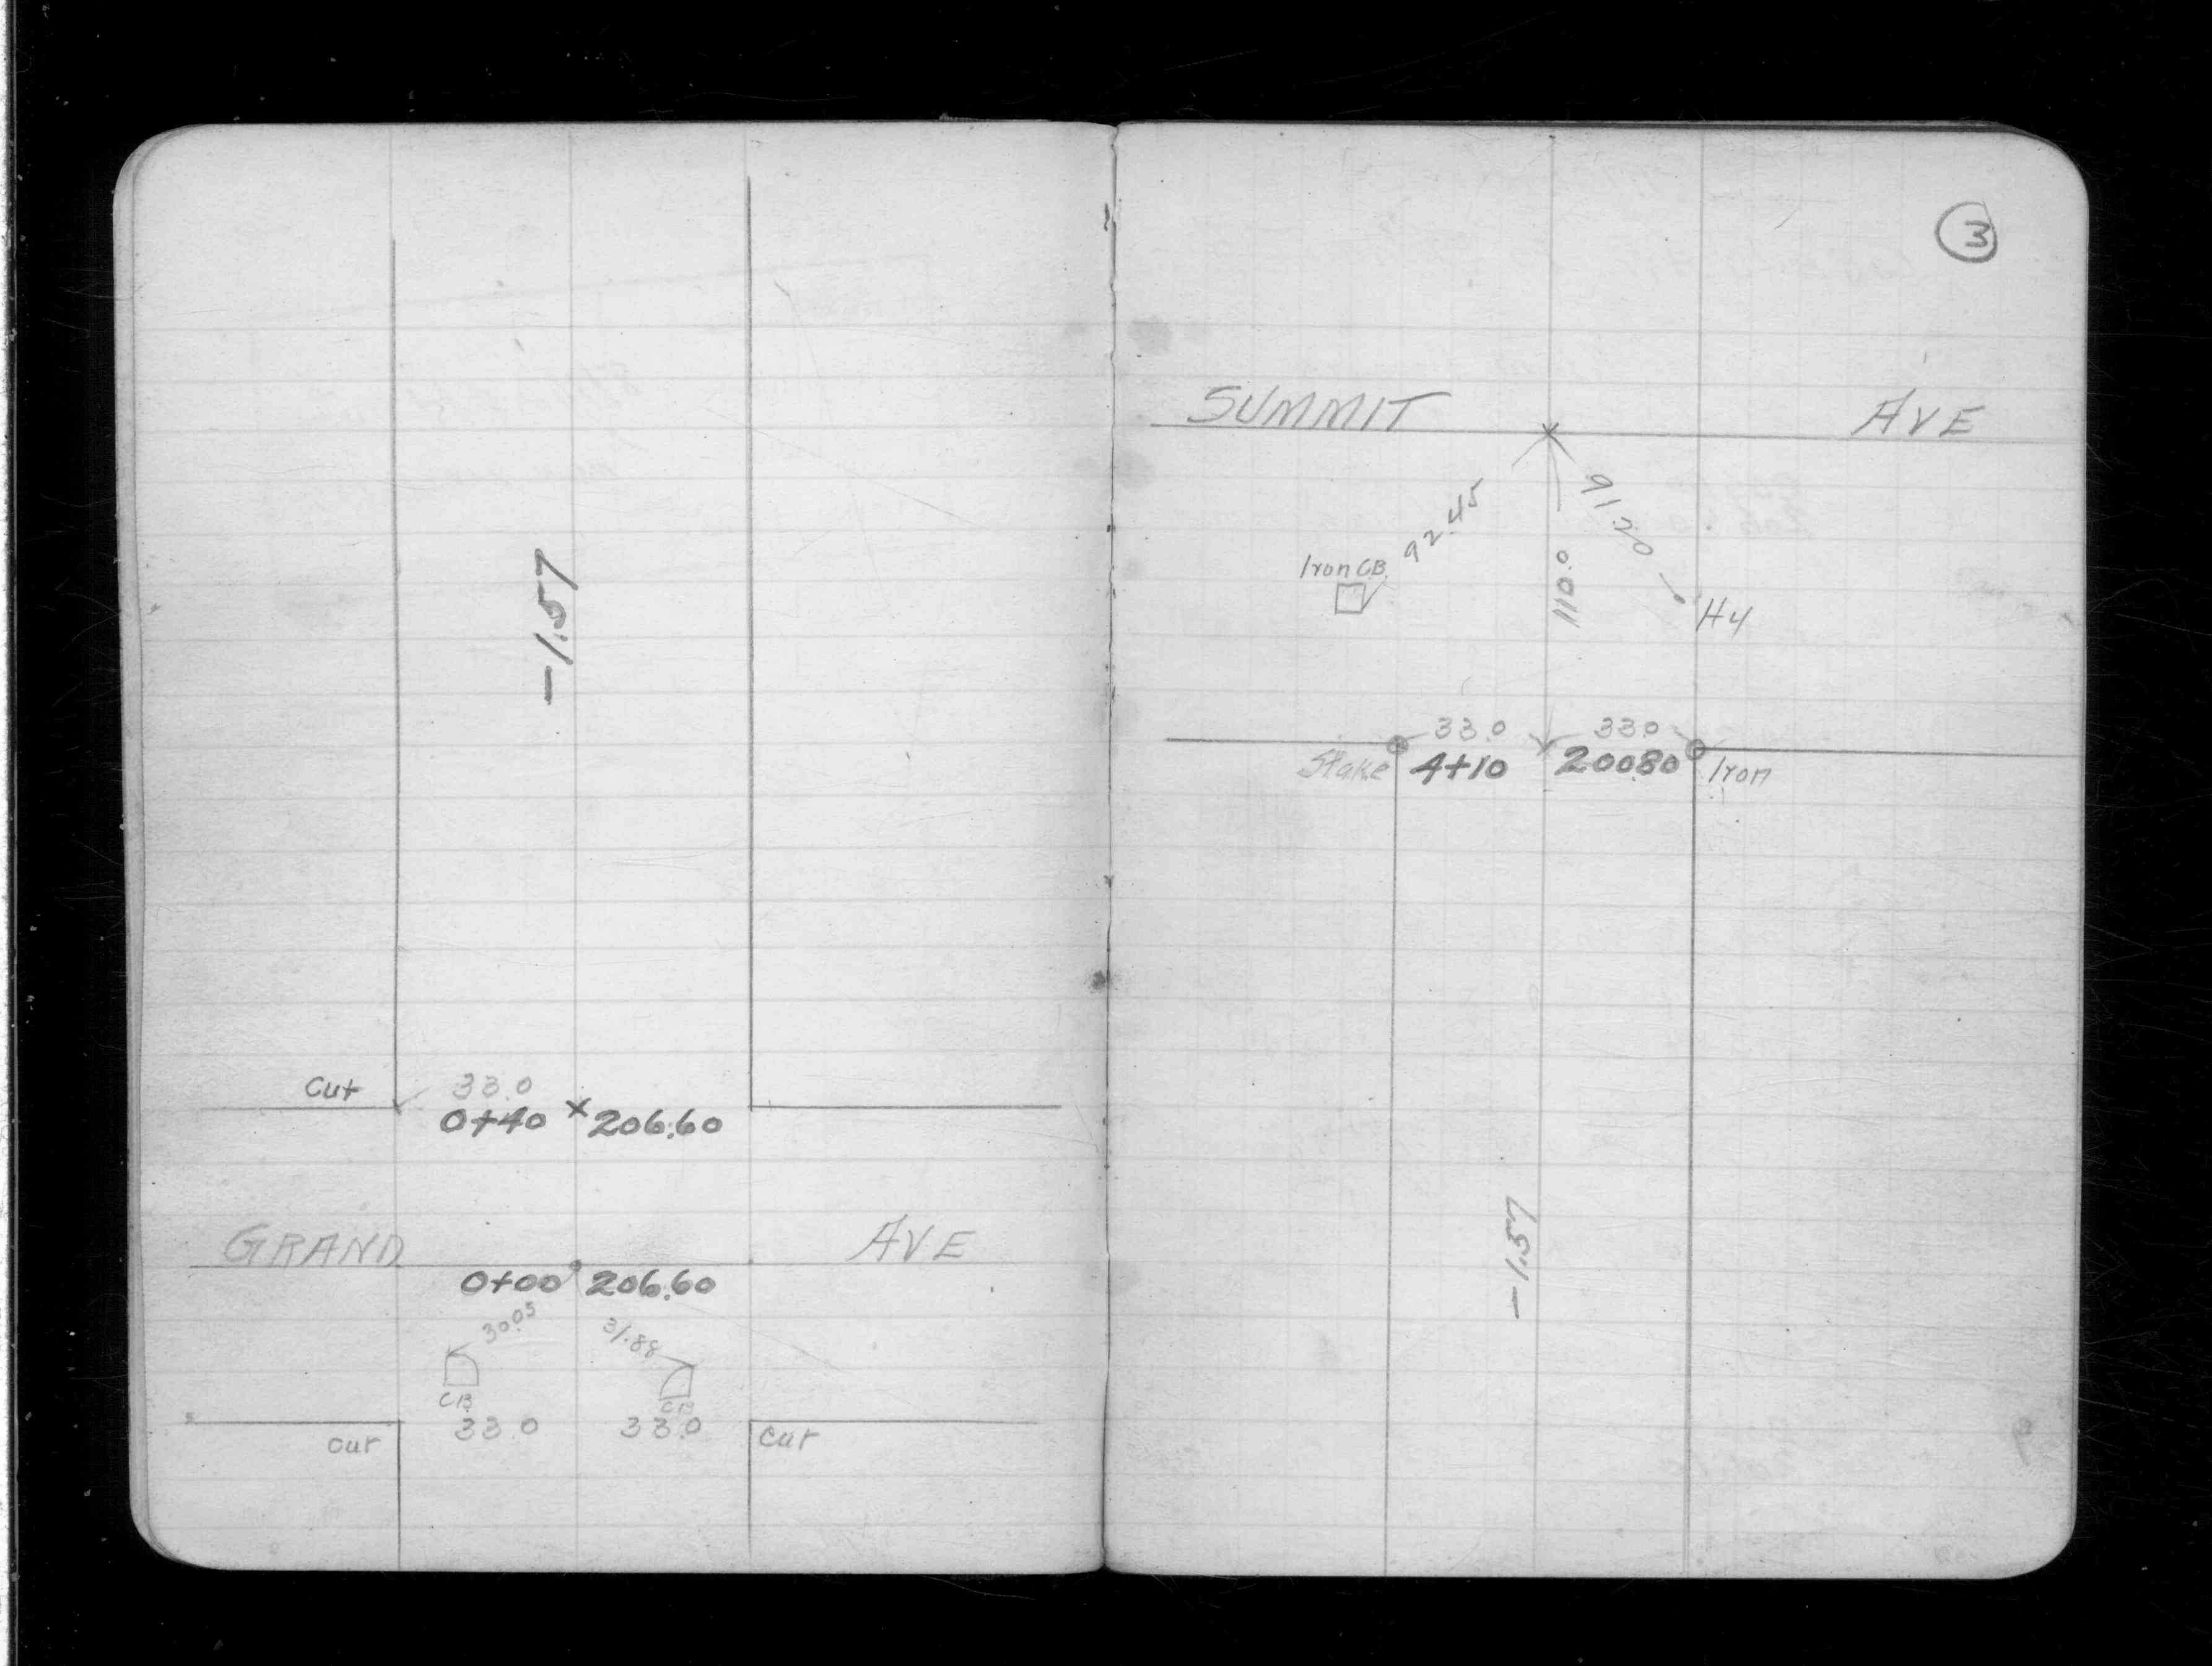 -1.57
Cut 33.0
0+40 206.60
GRAND AVE
0+00 206.60
30.05 31.88
CB CB
33.0 33.0
cut cut
3
SUMMIT AVE
92.45 110.0 91.20
Iron C.B.
Hy
33.0 33.0
Stake 4+10 200.80 Iron
-1.57